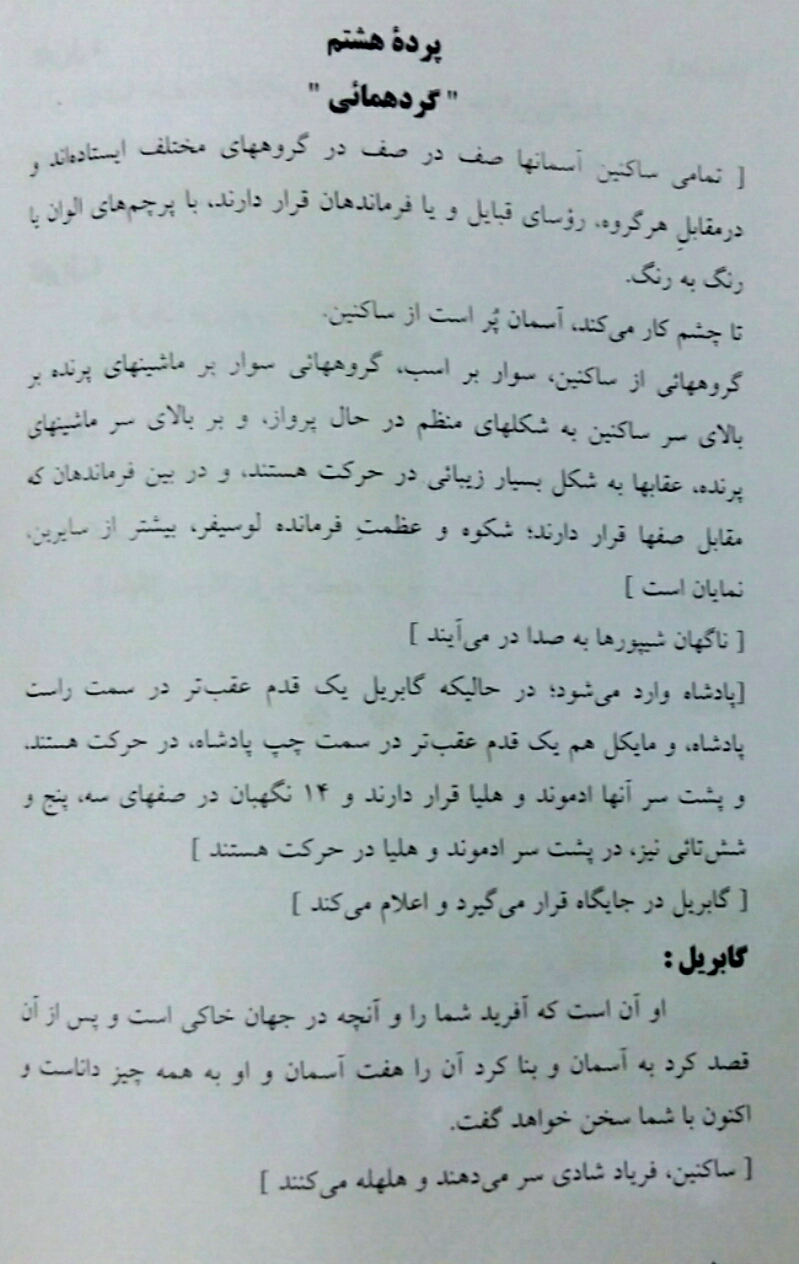 پردهٔ هشتم
" گردهمائی "
[ تمامی ساکنین آسمانها صف در صف در گروههای مختلف ایستاده‌اند و
درمقابلِ هرگروه، رؤسای قبایل و یا فرماندهان قرار دارند، با پرچم‌های الوان یا
رنگ به رنگ.
تا چشم کار می‌کند، آسمان پُر است از ساکنین.
گروههائی از ساکنین، سوار بر اسب، گروههائی سوار بر ماشینهای پرنده بر
بالای سر ساکنین به شکلهای منظم در حال پرواز، و بر بالای سر ماشینهای
پرنده، عقابها به شکل بسیار زیبائی در حرکت هستند، و در بین فرماندهان که
مقابل صفها قرار دارند؛ شکوه و عظمتِ فرمانده لوسیفر، بیشتر از سایرین،
نمایان است ]
[ ناگهان شیپورها به صدا در می‌آیند ]
[پادشاه وارد می‌شود؛ در حالیکه گابریل یک قدم عقب‌تر در سمت راست
پادشاه، و مایکل هم یک قدم عقب‌تر در سمت چپ پادشاه، در حرکت هستند،
و پشت سر آنها ادموند و هلیا قرار دارند و ۱۴ نگهبان در صفهای سه، پنج و
شش‌تائی نیز، در پشت سر ادموند و هلیا در حرکت هستند ]
[ گابریل در جایگاه قرار می‌گیرد و اعلام می‌کند ]
گابریل :
او آن است که آفرید شما را و آنچه در جهان خاکی است و پس از آن
قصد کرد به آسمان و بنا کرد آن را هفت آسمان و او به همه چیز داناست و
اکنون با شما سخن خواهد گفت.
[ ساکنین، فریاد شادی سر می‌دهند و هلهله می‌کنند ]